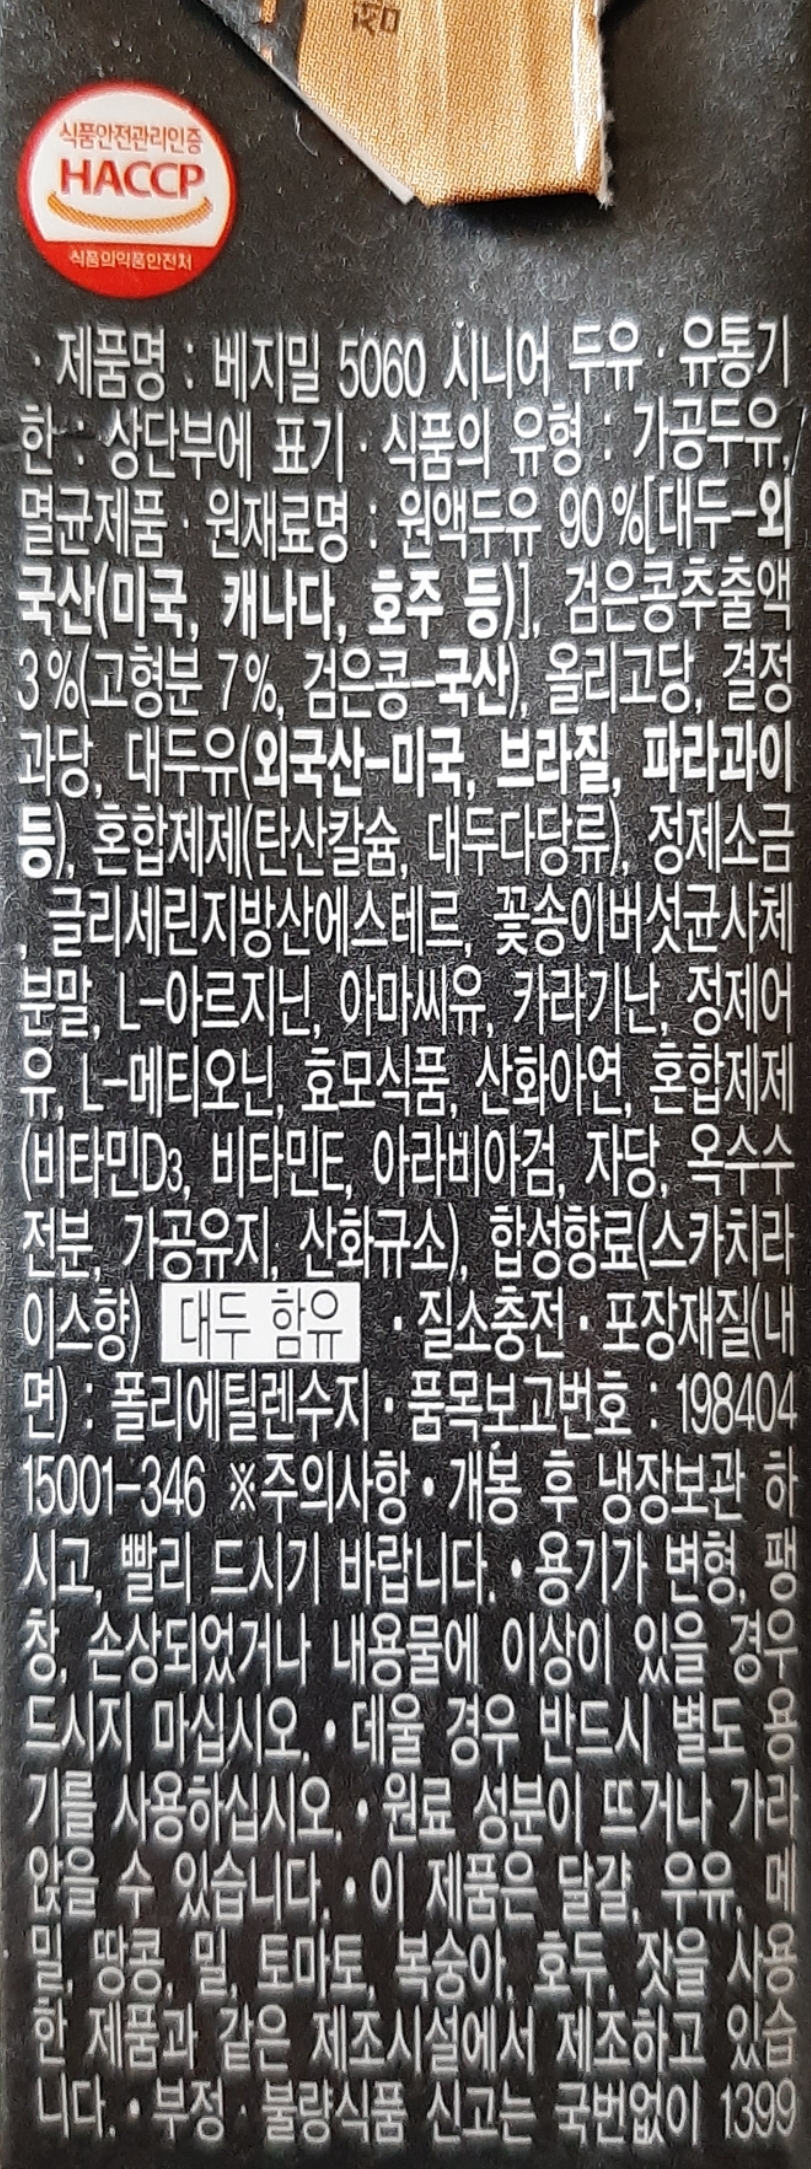 식품안전관리인증
HACCP
식품의약품안전처
· 제품명 : 베지밀 5060 시니어 두유 · 유통기
한 : 상단부에 표기 · 식품의 유형 : 가공두유,
멸균제품 · 원재료명 : 원액두유 90%[대두-외
국산(미국, 캐나다, 호주 등)], 검은콩추출액
3%(고형분 7%, 검은콩-국산), 올리고당, 결정
과당, 대두유(외국산-미국, 브라질, 파라과이
등), 혼합제제(탄산칼슘, 대두다당류), 정제소금
, 글리세린지방산에스테르, 꽃송이버섯균사체
분말, L-아르지닌, 아마씨유, 카라기난, 정제어
유, L-메티오닌, 효모식품, 산화아연, 혼합제제
(비타민D3, 비타민E, 아라비아검, 자당, 옥수수
전분, 가공유지, 산화규소), 합성향료(스카치라
이스향) 대두 함유 · 질소충전 · 포장재질(내
면) : 폴리에틸렌수지 · 품목보고번호 : 198404
15001-346 ※주의사항 • 개봉 후 냉장보관 하
시고, 빨리 드시기 바랍니다. • 용기가 변형, 팽
창, 손상되었거나 내용물에 이상이 있을 경우
드시지 마십시오. • 데울 경우 반드시 별도 용
기를 사용하십시오. • 원료 성분이 뜨거나 가라
앉을 수 있습니다. • 이 제품은 달걀, 우유, 메
밀, 땅콩, 밀, 토마토, 복숭아, 호두, 잣을 사용
한 제품과 같은 제조시설에서 제조하고 있습
니다. • 부정 · 불량식품 신고는 국번없이 1399